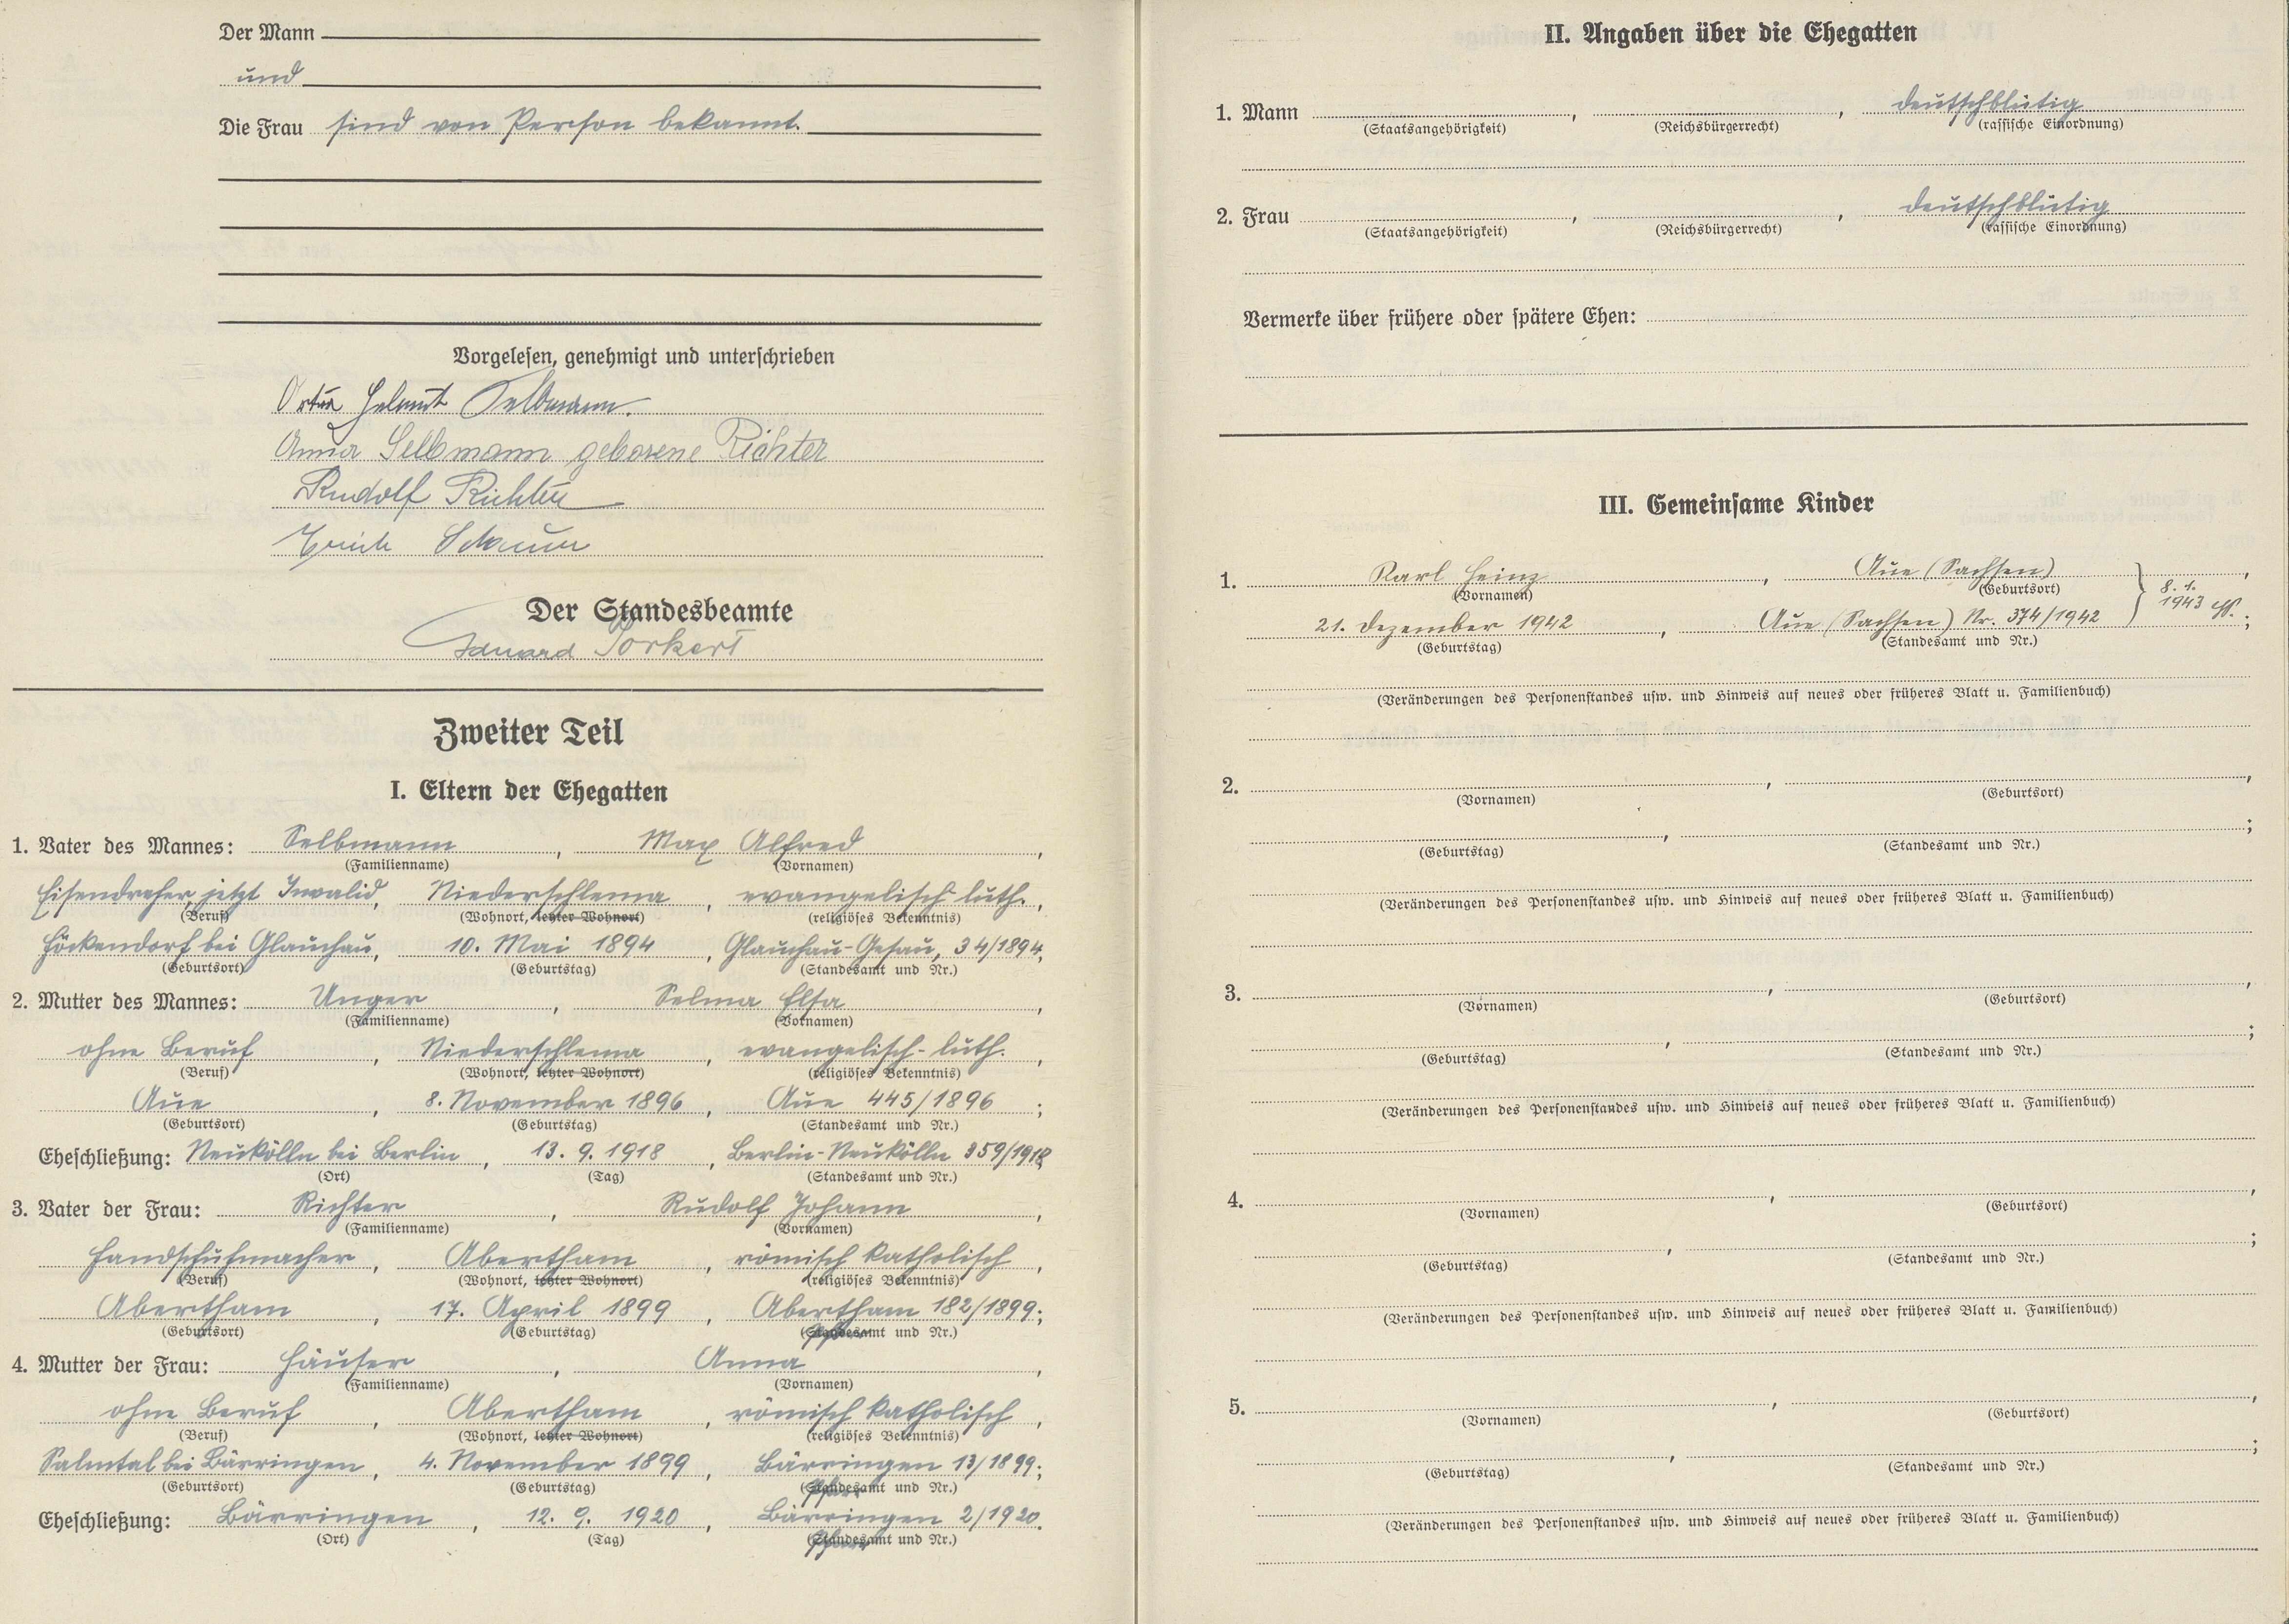 Der Mann
und
Die Frau sind von Person bekannt.
Vorgelesen, genehmigt und unterschrieben
Helmut Selbmann.
Anna Selbmann geborene Richter
Rudolf Richter
Erich
Der Standesbeamte
Eduard Porkert
Zweiter Teil
I. Eltern der Ehegatten
1. Vater des Mannes: Selbmann, Max Alfred,
(Familienname) (Vornamen)
Eisendreher, jetzt Invalid, Niederschlema, evangelisch luth.,
(Beruf) (Wohnort, letzter Wohnort) (religiöses Bekenntnis)
Höckendorf bei Glauchau, 10. Mai 1894, Glauchau-Gesau, 34/1894;
(Geburtsort) (Geburtstag) (Standesamt und Nr.)
2. Mutter des Mannes: Unger, Selma Elsa,
(Familienname) (Vornamen)
ohne Beruf, Niederschlema, evangelisch-luth.,
(Beruf) (Wohnort, letzter Wohnort) (religiöses Bekenntnis)
Aue, 8. November 1896, Aue 445/1896;
(Geburtsort) (Geburtstag) (Standesamt und Nr.)
Eheschließung: Neukölln bei Berlin, 13. 9. 1918, Berlin-Neukölln 359/1918
(Ort) (Tag) (Standesamt und Nr.)
3. Vater der Frau: Richter, Rudolf Johann,
(Familienname) (Vornamen)
Handschuhmacher, Abertham, römisch katholisch,
(Beruf) (Wohnort, letzter Wohnort) (religiöses Bekenntnis)
Abertham, 17. April 1899, Abertham 182/1899;
(Geburtsort) (Geburtstag) (Standesamt und Nr.)
4. Mutter der Frau: Häuser, Anna,
(Familienname) (Vornamen)
ohne Beruf, Abertham, römisch katholisch,
(Beruf) (Wohnort, letzter Wohnort) (religiöses Bekenntnis)
Salmtal bei Bärringen, 4. November 1899, Bärringen 13/1899;
(Geburtsort) (Geburtstag) (Standesamt und Nr.)
Eheschließung: Bärringen, 12. 9. 1920, Bärringen 2/1920.
(Ort) (Tag) (Standesamt und Nr.)
II. Angaben über die Ehegatten
1. Mann , , deutschblütig
(Staatsangehörigkeit) (Reichsbürgerrecht) (rassische Einordnung)
2. Frau , , deutschblütig
(Staatsangehörigkeit) (Reichsbürgerrecht) (rassische Einordnung)
Vermerke über frühere oder spätere Ehen:
III. Gemeinsame Kinder
1. Karl Heinz, Aue (Sachsen),
(Vornamen) (Geburtsort) 8. 1.
21. Dezember 1942, Aue (Sachsen) Nr. 374/1942 } 1943 ;
(Geburtstag) (Standesamt und Nr.)
(Veränderungen des Personenstandes usw. und Hinweis auf neues oder früheres Blatt u. Familienbuch)
2. , ,
(Vornamen) (Geburtsort)
, ;
(Geburtstag) (Standesamt und Nr.)
(Veränderungen des Personenstandes usw. und Hinweis auf neues oder früheres Blatt u. Familienbuch)
3. , ,
(Vornamen) (Geburtsort)
, ;
(Geburtstag) (Standesamt und Nr.)
(Veränderungen des Personenstandes usw. und Hinweis auf neues oder früheres Blatt u. Familienbuch)
4. , ,
(Vornamen) (Geburtsort)
, ;
(Geburtstag) (Standesamt und Nr.)
(Veränderungen des Personenstandes usw. und Hinweis auf neues oder früheres Blatt u. Familienbuch)
5. , ,
(Vornamen) (Geburtsort)
, ;
(Geburtstag) (Standesamt und Nr.)
(Veränderungen des Personenstandes usw. und Hinweis auf neues oder früheres Blatt u. Familienbuch)